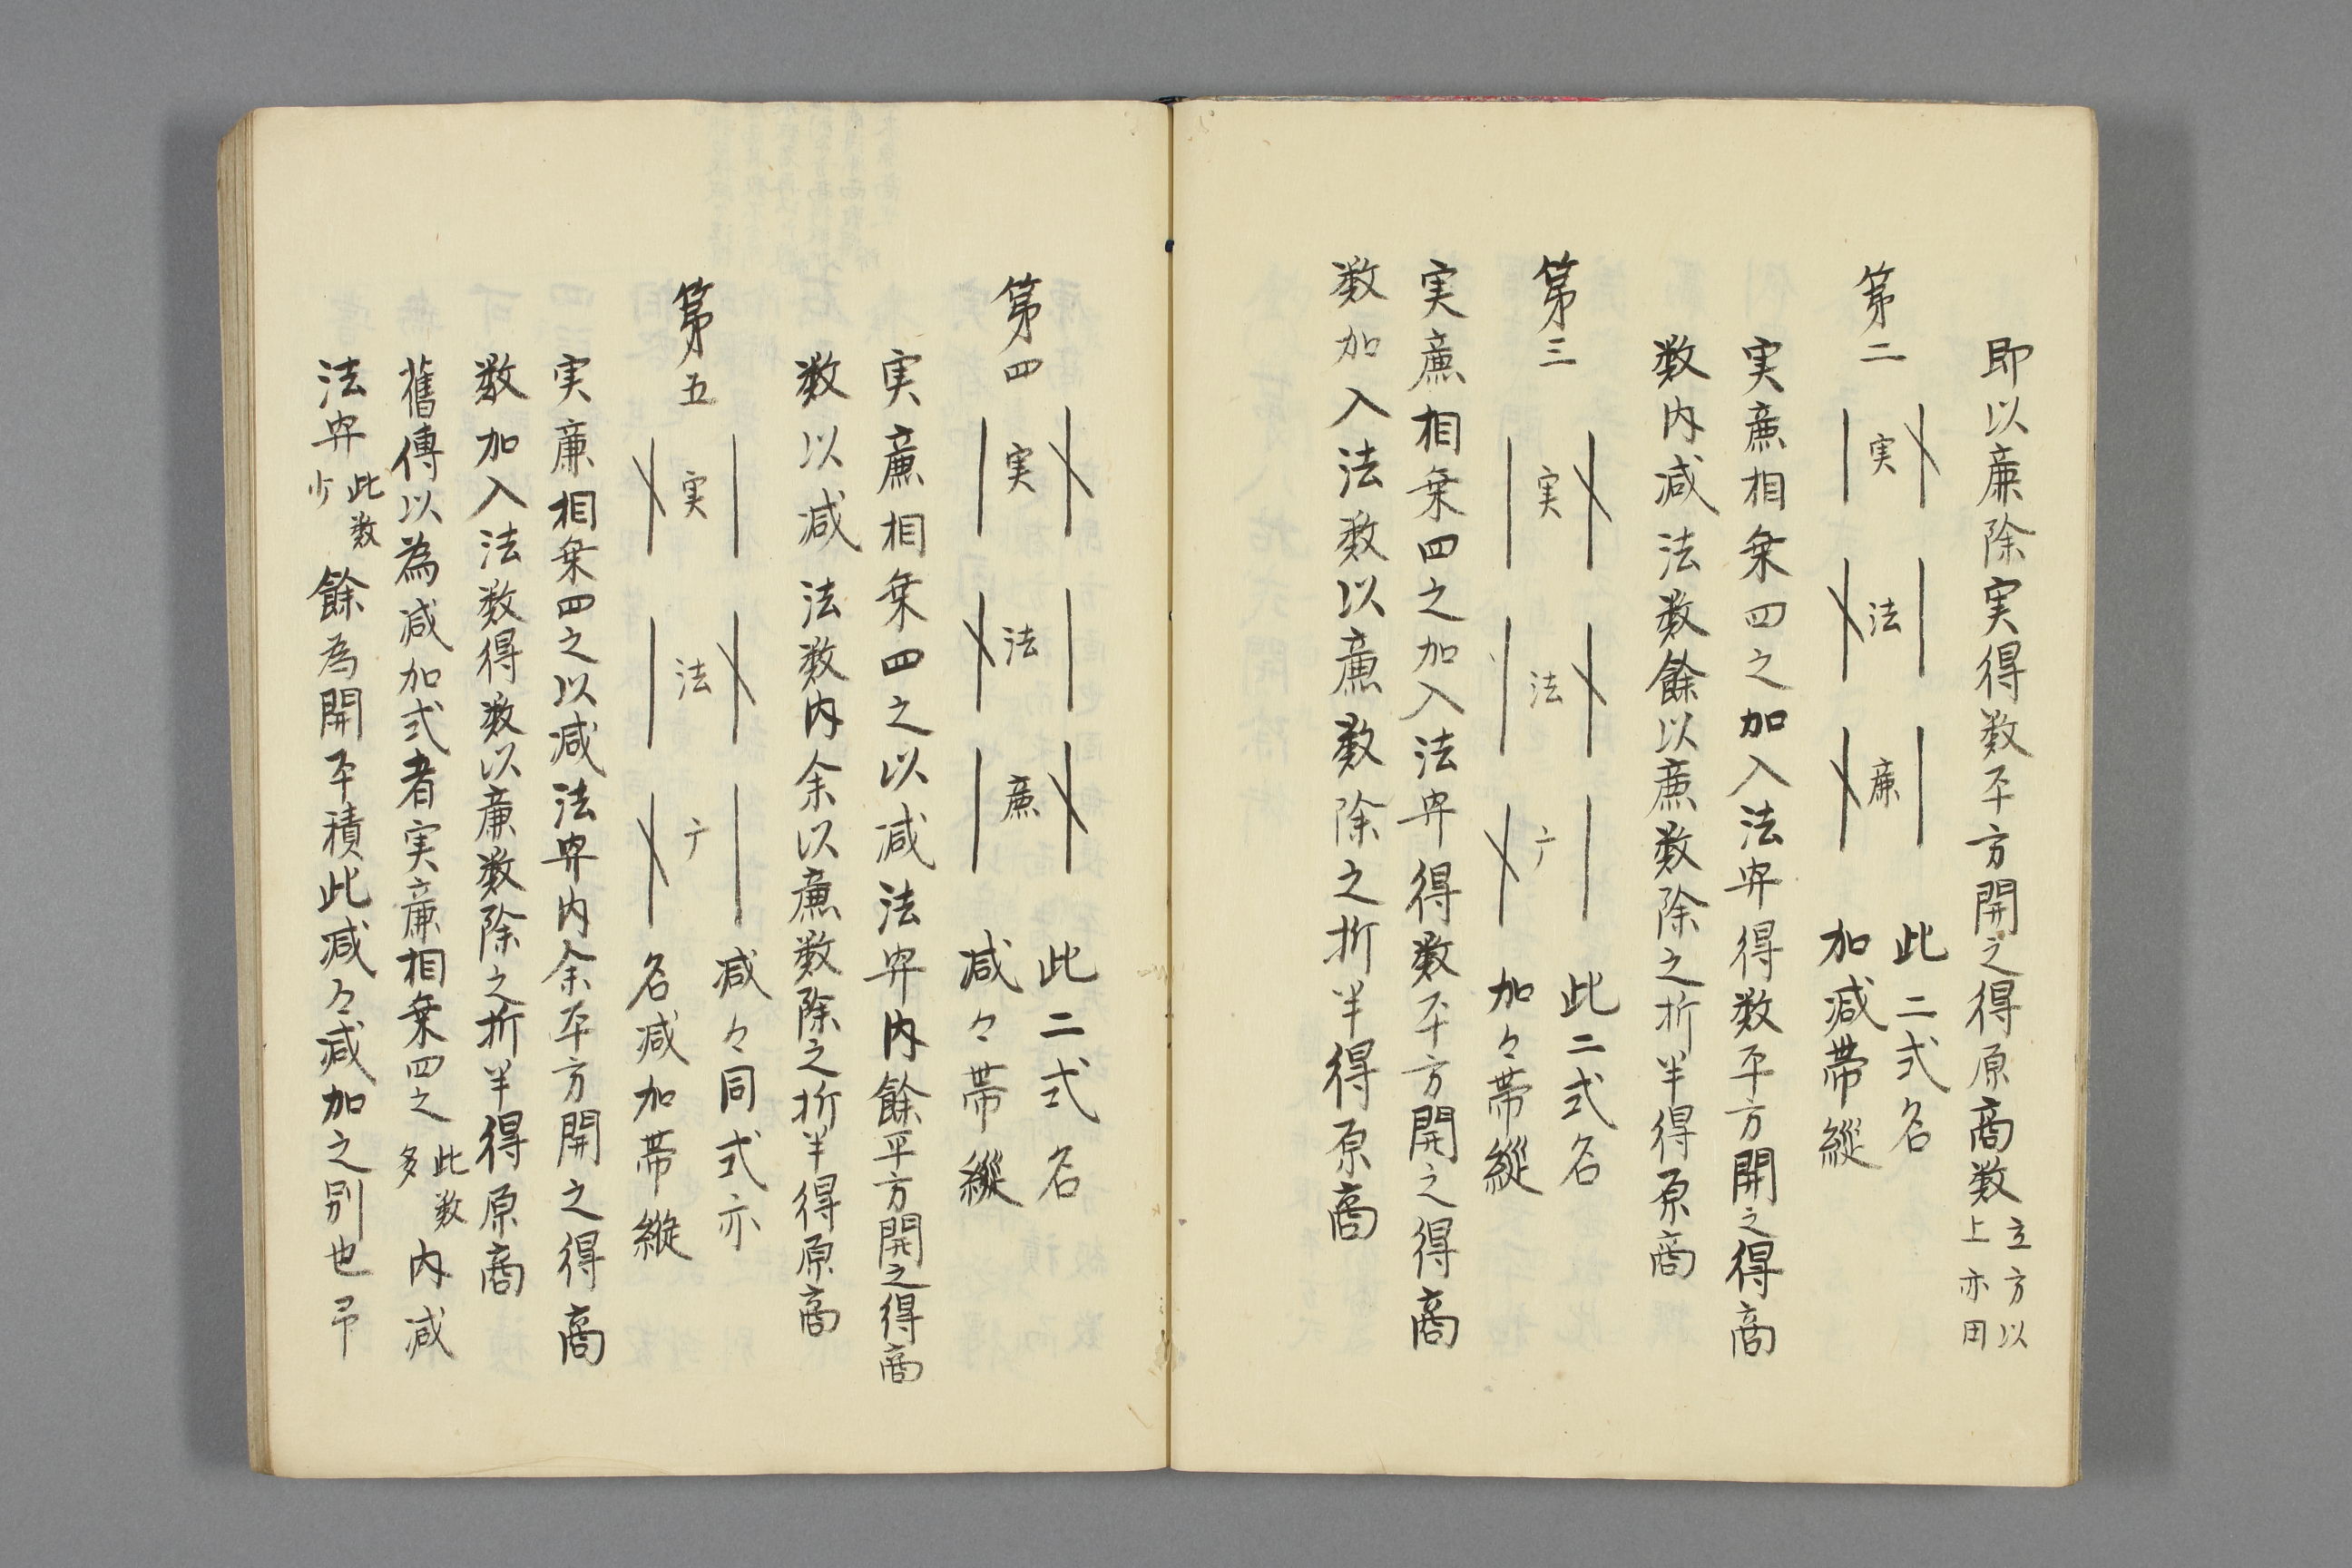 即以廉除実得数平方開之得原商数立方以上亦田
第二
実 法 廉
此二式名
加减帯縦
実廉相乗四之加入法冪得数平方開之得商
数内减法数餘以廉数除之折半得原商
第三
実 法 广
此二式名
加々帯縦
実廉相乗四之加入法冪得数平方開之得商
数加入法数以廉数除之折半得原商
第四
実 法 廉
此二式名
减々帯縦
実廉相乗四之以减法冪内餘平方開之得商
数以减法数内余以廉数除之折半得原商
第五
実 法 广
减々同式亦
名减加帯縦
実廉相乗四之以减法冪内余平方開之得商
数加入法数得数以廉数除之折半得原商
舊傳以為减加式者実廉相乗四之此数多内减
法冪此数少餘為開平積此减々减加之別也